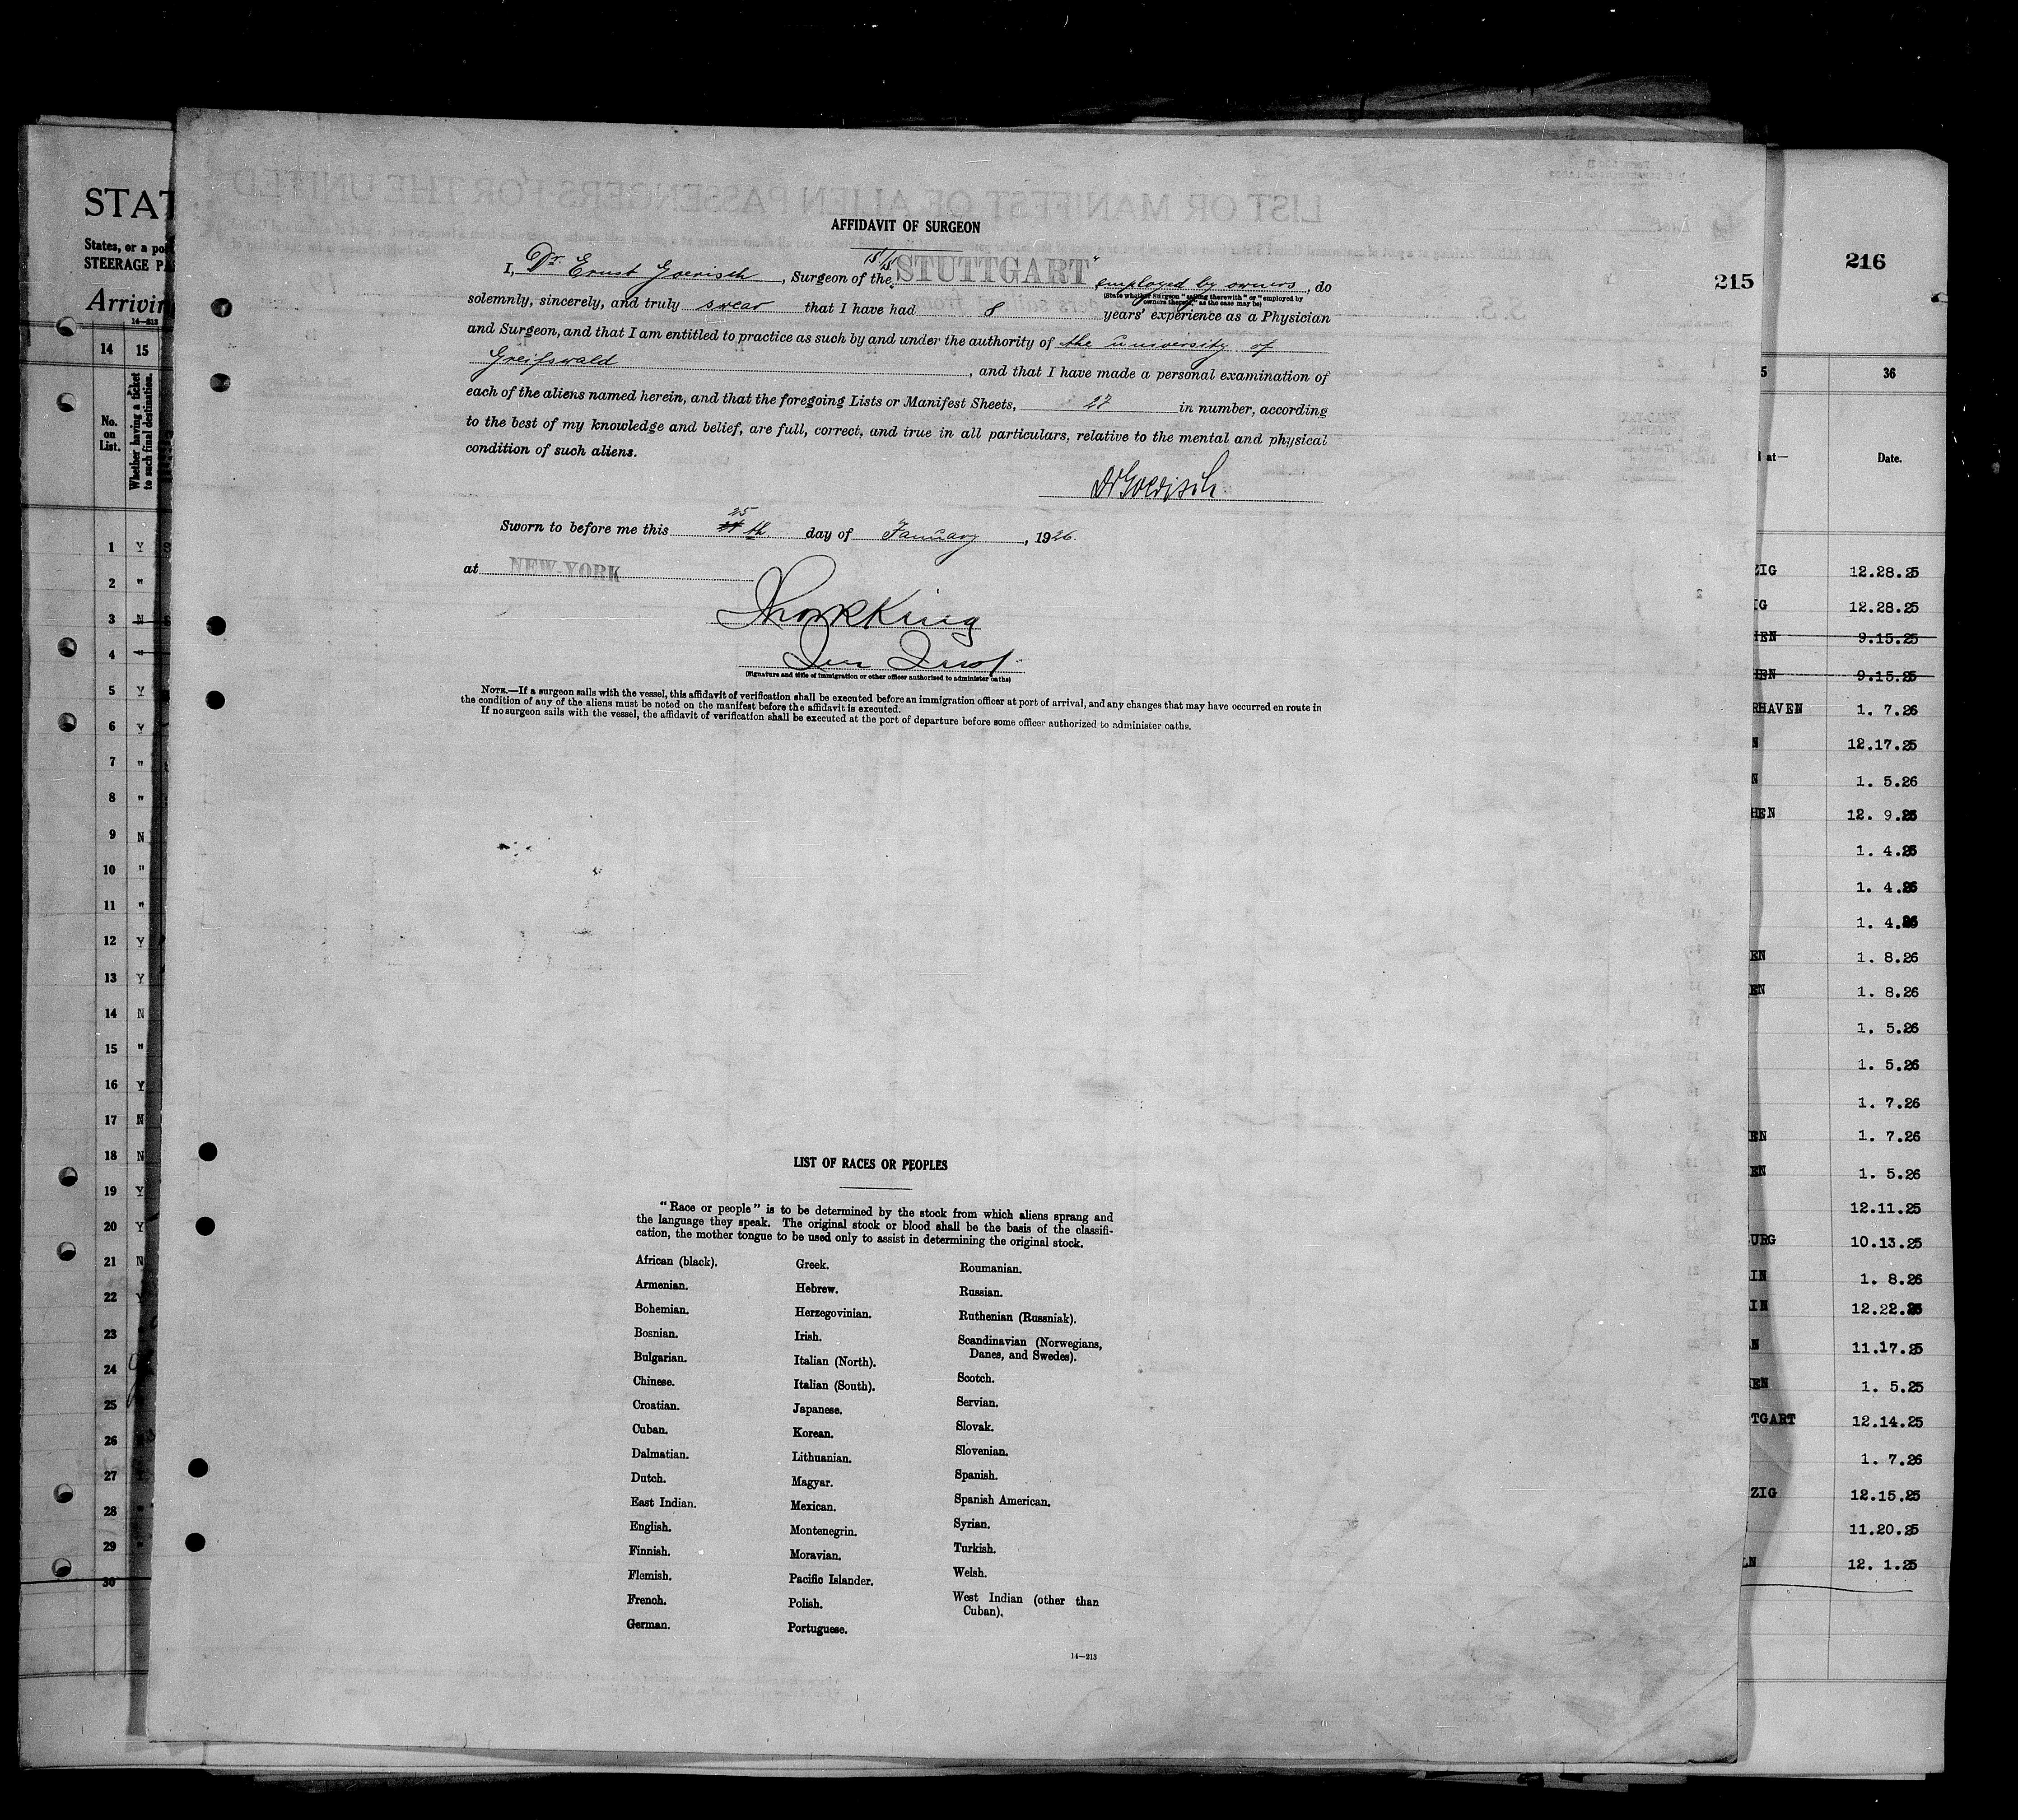 STAT
States, or a po
STEERAGE PA
Arrivin
14—213
14 15
No. on List.
Whether having a ticket to such final destination.
1 Y S
2 "
3 N S
4 "
5 Y
6 Y
7 "
8 "
9 N
10 "
11 "
12 Y
13 Y
14 N
15 "
16 Y
17 N
18 N
19 Y
20 Y
21 N
22 Y
23
24
25
26
27
28 "
29 "
30
LIST OR MANIFEST OF ALIEN PASSENGERS FOR THE UNITED
215
AFFIDAVIT OF SURGEON
I, Dr. Ernst Goerisch, Surgeon of the S/S "STUTTGART" employed by owners, do
(State whether Surgeon "sailing therewith" or "employed by owners thereof," as the case may be)
solemnly, sincerely, and truly swear that I have had 8 years' experience as a Physician
and Surgeon, and that I am entitled to practice as such by and under the authority of the university of
Greifswald, and that I have made a personal examination of
each of the aliens named herein, and that the foregoing Lists or Manifest Sheets, 27 in number, according
to the best of my knowledge and belief, are full, correct, and true in all particulars, relative to the mental and physical
condition of such aliens.
Dr Goerisch
Sworn to before me this 25 th day of January, 1926.
at NEW-YORK
King
(Signature and title of immigration or other officer authorized to administer oaths)
NOTE.—If a surgeon sails with the vessel, this affidavit of verification shall be executed before an immigration officer at port of arrival, and any changes that may have occurred en route in
the condition of any of the aliens must be noted on the manifest before the affidavit is executed.
If no surgeon sails with the vessel, the affidavit of verification shall be executed at the port of departure before some officer authorized to administer oaths.
LIST OF RACES OR PEOPLES
"Race or people" is to be determined by the stock from which aliens sprang and
the language they speak. The original stock or blood shall be the basis of the classifi-
cation, the mother tongue to be used only to assist in determining the original stock.
African (black).
Armenian.
Bohemian.
Bosnian.
Bulgarian.
Chinese.
Croatian.
Cuban.
Dalmatian.
Dutch.
East Indian.
English.
Finnish.
Flemish.
French.
German.
Greek.
Hebrew.
Herzegovinian.
Irish.
Italian (North).
Italian (South).
Japanese.
Korean.
Lithuanian.
Magyar.
Mexican.
Montenegrin.
Moravian.
Pacific Islander.
Polish.
Portuguese.
Roumanian.
Russian.
Ruthenian (Russniak).
Scandinavian (Norwegians,
Danes, and Swedes).
Scotch.
Servian.
Slovak.
Slovenian.
Spanish.
Spanish American.
Syrian.
Turkish.
Welsh.
West Indian (other than
Cuban).
14—213
216
5 36
d at— Date.
ZIG 12.28.25
IG 12.28.25
EN 9.15.25
EN 9.15.25
RHAVEN 1. 7.26
N 12.17.25
N 1. 5.26
HEN 12. 9.25
1. 4.26
1. 4.26
1. 4.26
EN 1. 8.26
EN 1. 8.26
1. 5.26
1. 5.26
1. 7.26
EN 1. 7.26
EN 1. 5.26
12.11.25
URG 10.13.25
IN 1. 8.26
IN 12.22.25
N 11.17.25
EN 1. 5.25
TGART 12.14.25
1. 7.26
ZIG 12.15.25
11.20.25
LN 12. 1.25